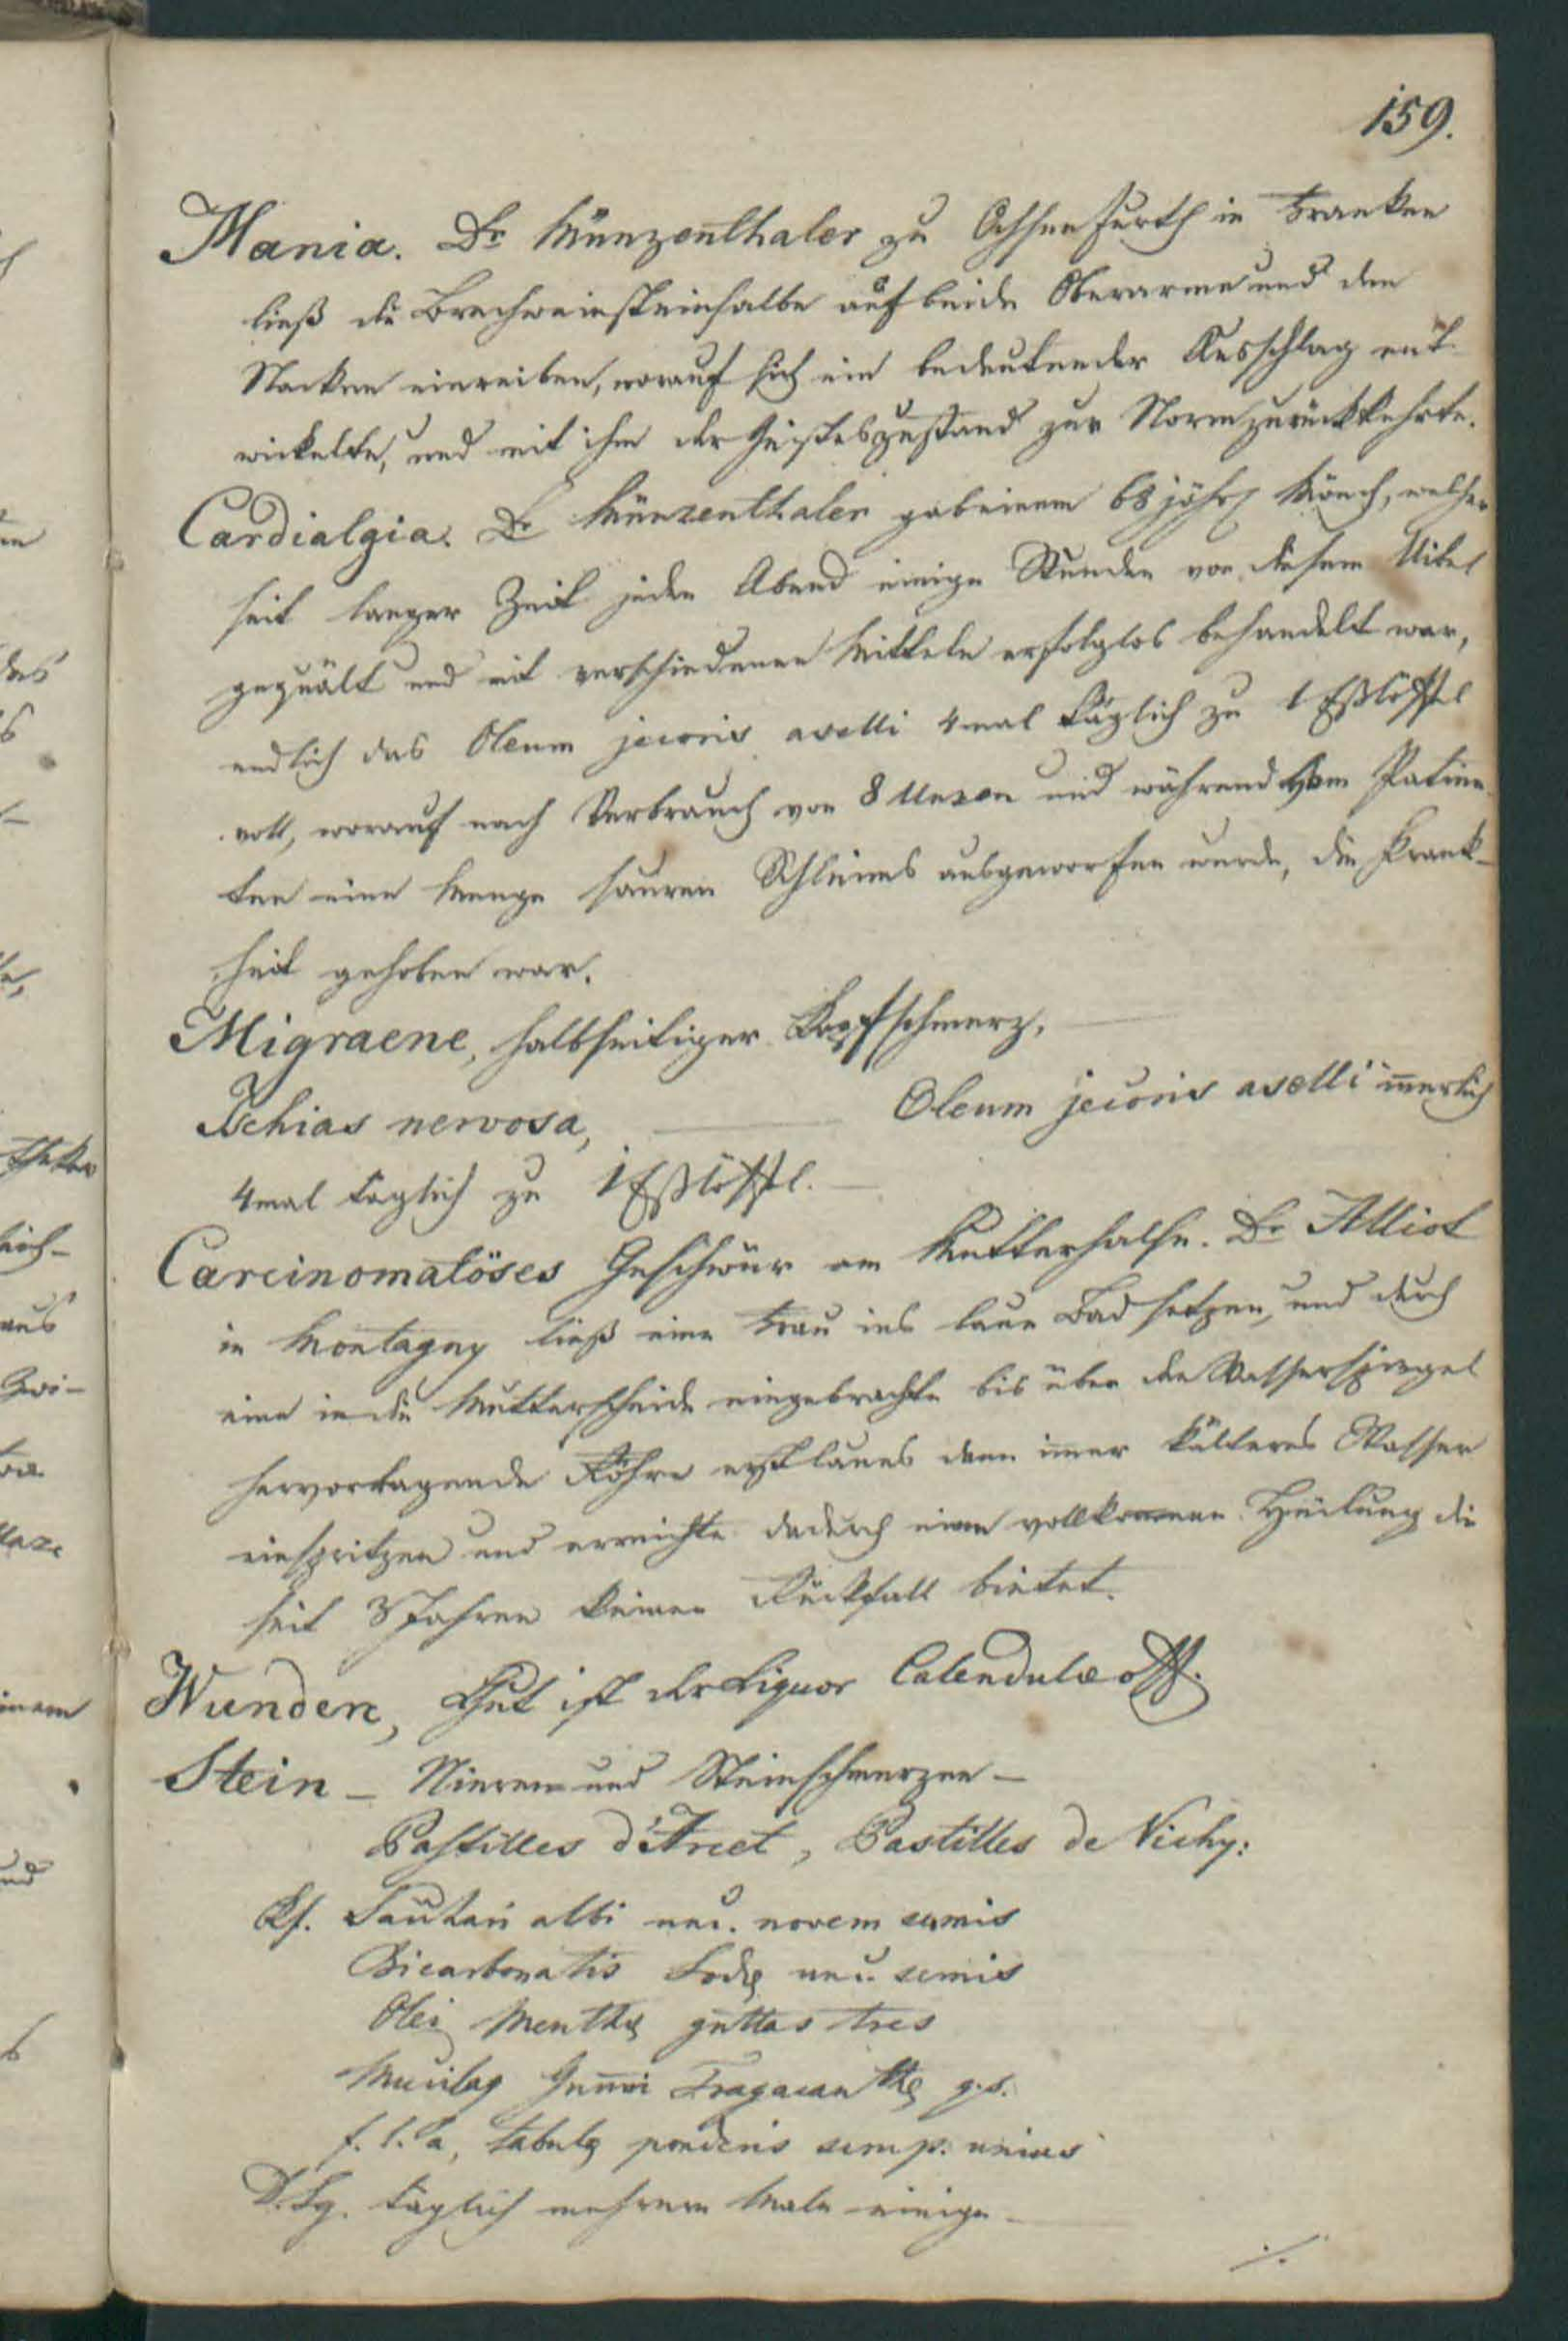 159.
Mania. Dr Münzenthaler zu Ochsenfurth in Franken
ließ die Brechweinsteinsalbe auf beide Oberarme und den
Nacken einreiben, worauf sich ein bedeutender Ausschlag ent-
wickelte, und mit ihm der Geisteszustand zur Norm zurückkehrte.
Cardialgia. Dr Münzenthaler gab einem 68 jähr Mönch, welcher
seit langer Zeit jeden Abend einige Stunden von diesem Uibel
gequält und mit verschiedenen Mitteln erfolglos behandelt war,
endlich das Oleum jecoris aselli 4 mal täglich zu 1 Eßlöffel
voll, worauf nach Verbrauch von 8 Unzen und während dem Patien
ten eine Menge sauren Schleims ausgeworfen wurde, die Krank-
heit gehoben war.
Migraene, halbseitiger Kopfschmerz,
Ischias nervosa, Oleum jecoris aselli iñerlich
4mal täglich zu 1 Eßlöffel.
Carcinomatöses Geschwür am Mutterhalse. Dr Alliot
in Montagny ließ eine Frau ins laue Bad setzen, und durch
eine in die Mutterscheide eingebrachte bis über den Wasserspiegel
hervorragende Röhre erst laues dann im̃er kälteres Wasser
einspritzen und erreichte dadurch eine vollkommene Heilung die
seit 3 Jahren keinen Rückfall bietet.
Wunden, Gut ist der Liquor Calendulæ off.
Stein - Nieren und Steinschmerzen -
Pastilles d'Arcet, Pastilles de Vichy:
Rf. Sachari albi unc. novem semis
Bicarbonatis Sodæ unc. semis
Olei Menthæ guttas tres
Mucilag Gum̃i Tragacanthæ q.s.
f. l. a, tabulæ ponderis semp. unius
D. Sg. täglich mehrere Male einige
./.